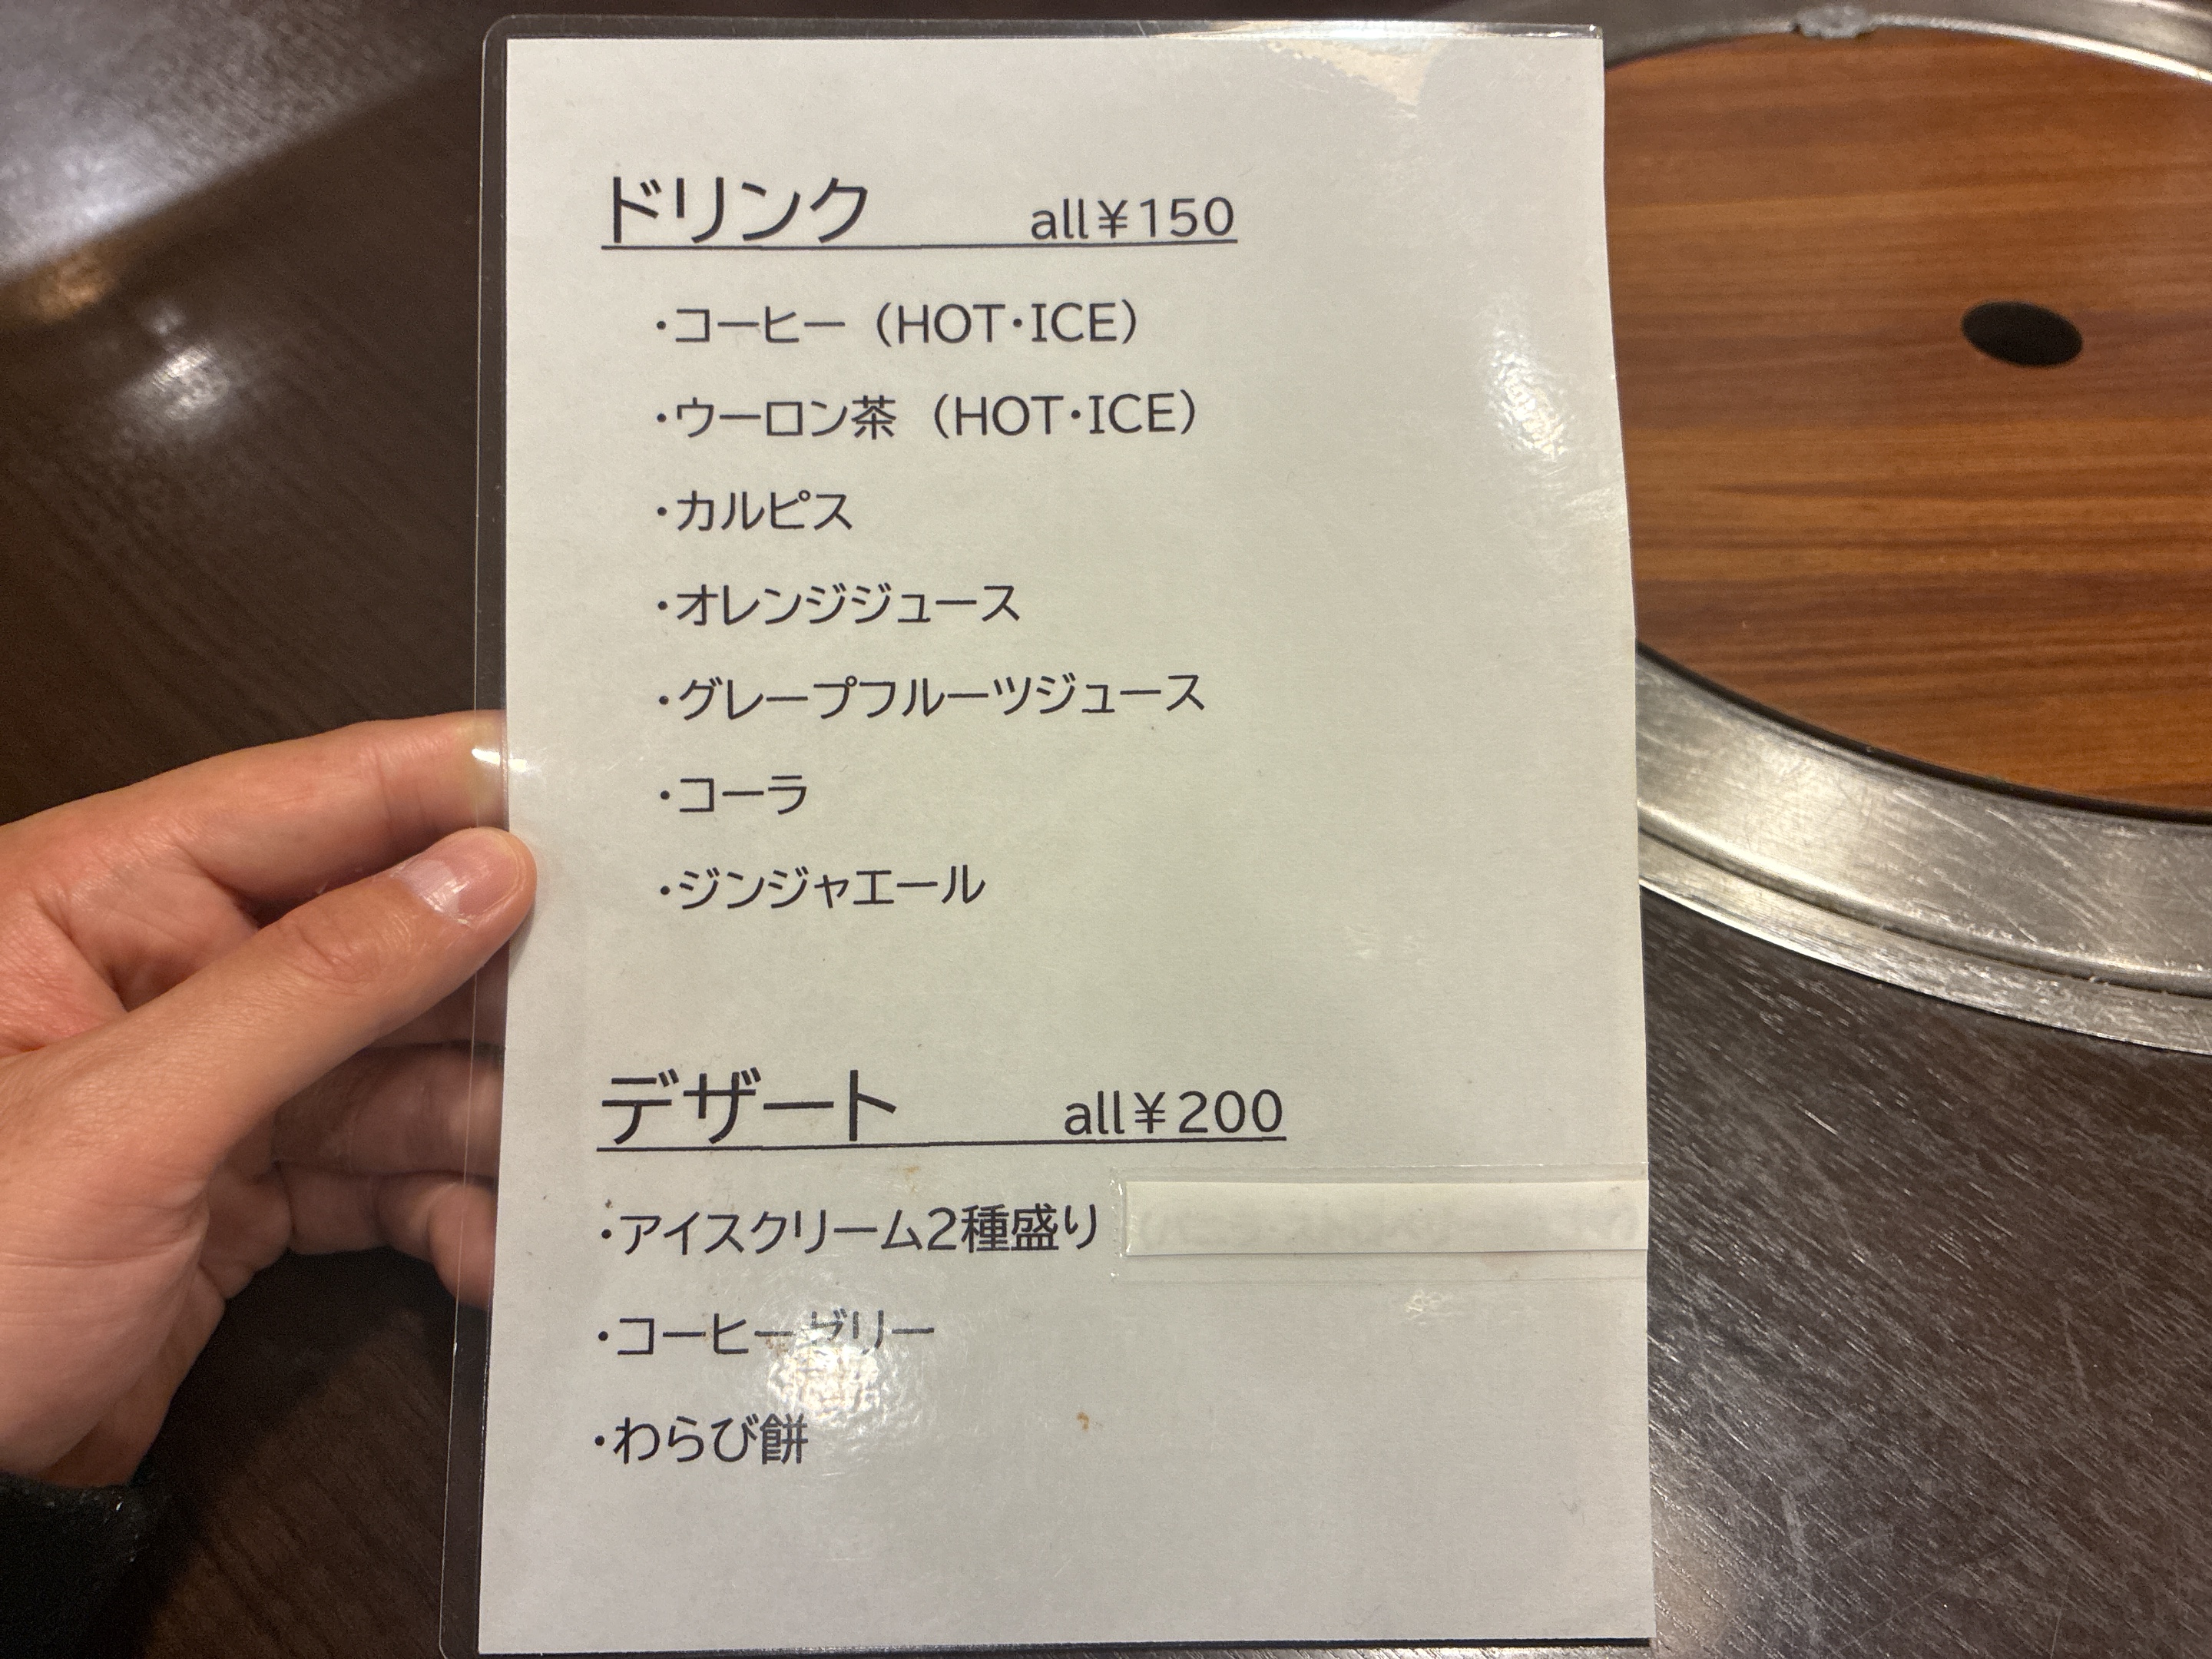 ドリンク all¥150
・コーヒー（HOT・ICE）
・ウーロン茶（HOT・ICE）
・カルピス
・オレンジジュース
・グレープフルーツジュース
・コーラ
・ジンジャエール
デザート all¥200
・アイスクリーム2種盛り
・コーヒーゼリー
・わらび餅